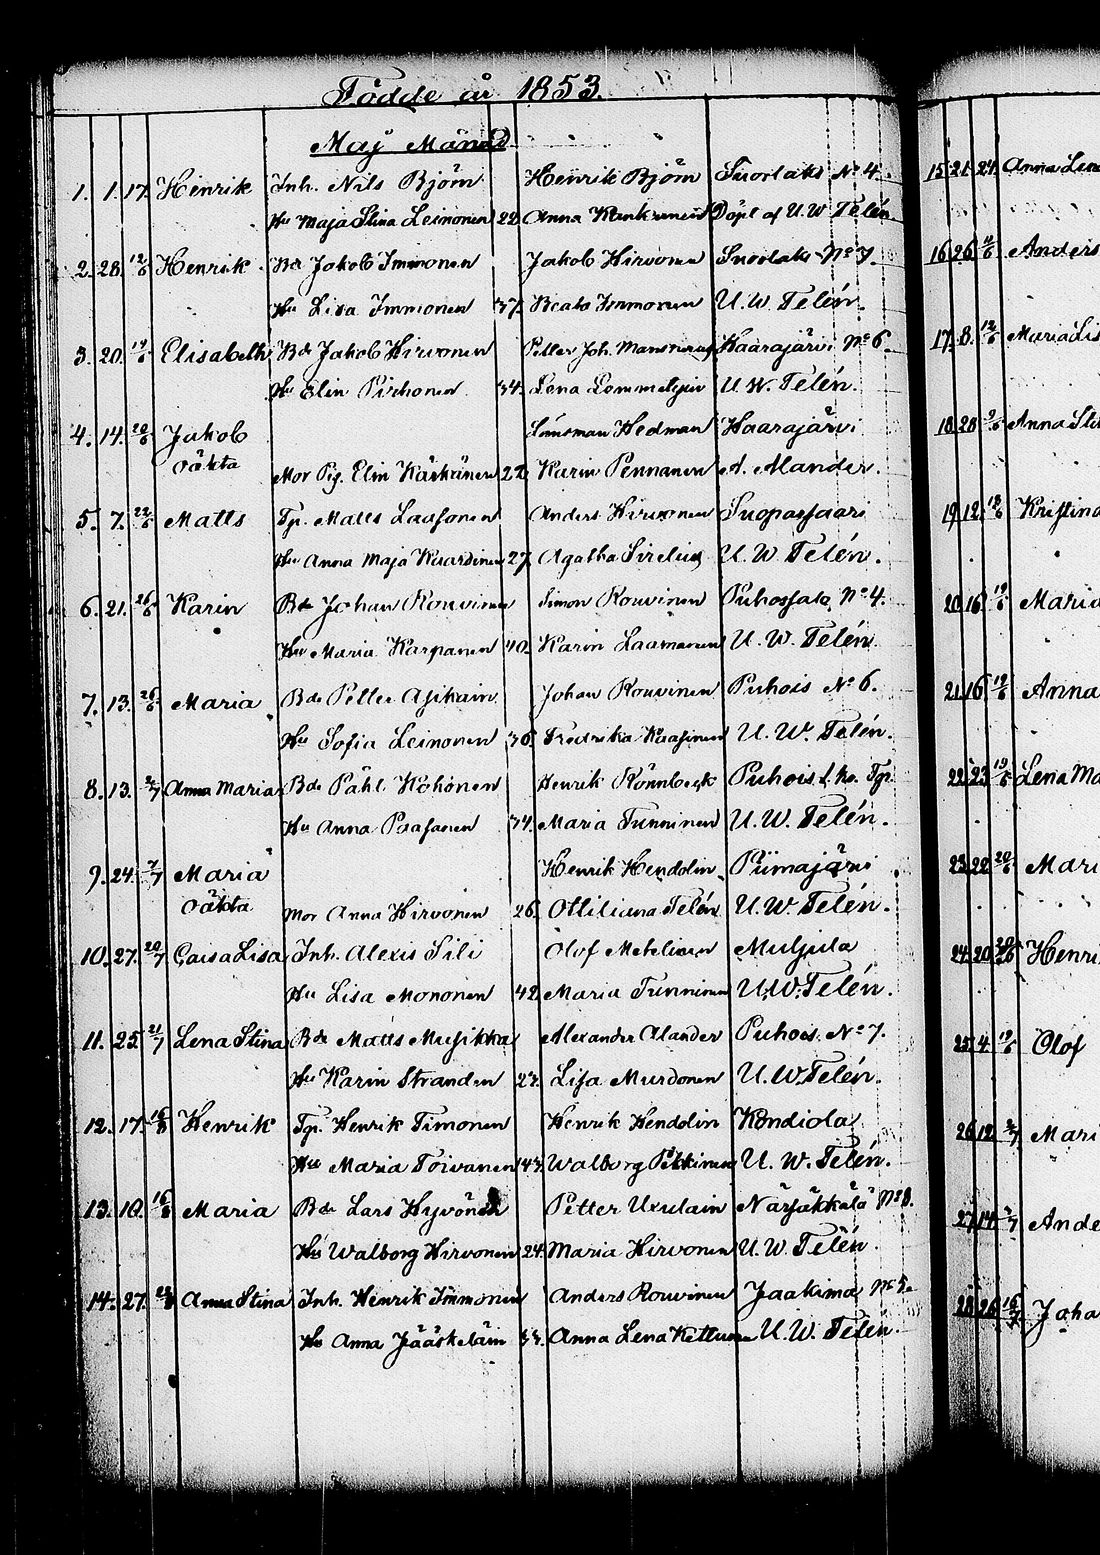 Födde år 1853.
Maj Månad
1. 1. 17. Henrik Inh. Nils Björn Henrik Björn Suorlaks No 4.
Hu Maja Stina Leinonen 22. Anna Döpt af U. W. Telén
2. 28. 12/6 Henrik Bd Jakob Immonen Jakob Hirvonen Suorlaks No 7.
Hu Lisa Immonen 37. Beata Immonen U. W. Telén.
3. 20. 19/6 Elisabeth Bde Jakob Hirvonen Petter Joh. Haarajärvi No 6.
Hu Elin Pirhonen 34. Lena U. W. Telén.
4. 14. 20/6 Jakob Länsman Hedman Haarajärvi
oäkta Mor Pig. Elin Kärkänen 22. Karin Pennanen A. Alander.
5. 7. 22/6 Matts Tp. Matts Laasonen Anders Hirvonen
Hu Anna Maja 27. Agatha Sirelius U. W. Telén.
6. 21. 26/6 Karin Bde Johan Rouvinen Simon Rouvinen No 4.
Hu Maria Karpanen 40. Karin Laamanen U. W. Telén.
7. 13. 26/6 Maria Bde Petter Asikain Johan Rouvinen Puhois No 6.
Hu Sofia Leinonen 36. Fredrika U. W. Telén.
8. 13. 2/7 Anna Maria Bde Påhl Henrik Rönnback Puhois
Hu Anna Paasonen 34. Maria Tunninen U. W. Telén.
9. 24. 7/7 Maria Henrik Henddlin Piimajärvi
oäkta Mor Anna Hirvonen 26. Ottiliana Telén U. W. Telén.
10. 27. 20/7 Caisa Lisa Inh. Alexis Sili Olof Muljula
Hu Lisa Mononen 42. Maria Tunninen U. W. Telén.
11. 25. 21/7 Lena Stina Bde Matts Musikka Alexander Alander Puhois No 7.
Hu Karin Strandin 23. Lisa U. W. Telén.
12. 17. 16/8 Henrik Tp. Henrik Timonen Henrik Henddlin Kondiola
Hu Maria Toivanen 43. Walborg Pekkinen U. W. Telén.
13. 10. 16/8 Maria Bde Lars Hyvönen Petter Närsäkkälä No 8.
Hu Walborg Hirvonen 24. Maria Hirvonen U. W. Telén.
14. 27. Anna Stina Inh. Henrik Immonen Anders Rouvinen Jaakima No 5.
Hu Anna Jääskeläin 33. Anna Lena Kettunen U. W. Telén.
15. 21. 24. Anna Lena
16. 26. Anders
17. 8. 12/6 Maria Lis
18. 28 Anna Sti
19. 12. Kristina
20. 16. 19/6 Maria
21. 16 19/6 Anna
22. 23 19/6 Lena Ma
23. 22 20/6 Mari
24. 20. Henri
25. 4. 19/6 Olof
26. 12. 3/7 Mari
27. 14. Ande
28. 26. Joha